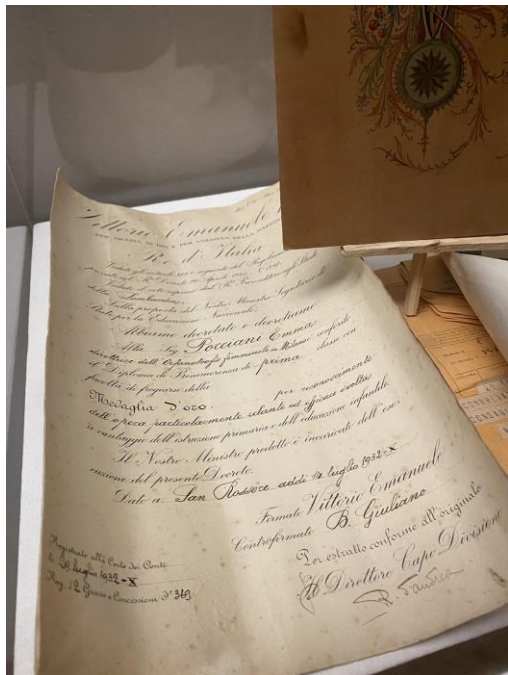 Vittorio Emanuele
PER GRAZIA DI DIO E PER VOLONTÀ DELLA NAZIONE
Re d'Italia
Veduto il voto espresso dal
Sulla proposta del Nostro Ministro Segretario di
Stato per la Educazione Nazionale;
Abbiamo decretato e decretiamo
Alla Sig. Pocciani Emma
direttrice dell'Orfanotrofio femminile in Milano conferito
il Diploma di Benemerenza di prima classe con
facoltà di fregiarsi della
Medaglia d'oro. per riconoscimento
dell'opera particolarmente zelante ed efficace svolta
a vantaggio dell'istruzione primaria e dell'educazione infantile.
Il Nostro Ministro predetto è incaricato dell'ese-
cuzione del presente Decreto.
Dato a San Rossore addì 12 luglio 1932-X
Firmato Vittorio Emanuele
Controfirmato B. Giuliano
Per estratto conforme all'originale
Il Direttore Capo Divisione
Registrato alla Corte dei Conti
luglio 1932-X
Reg. 12 Grazie e Concessioni, N° 363